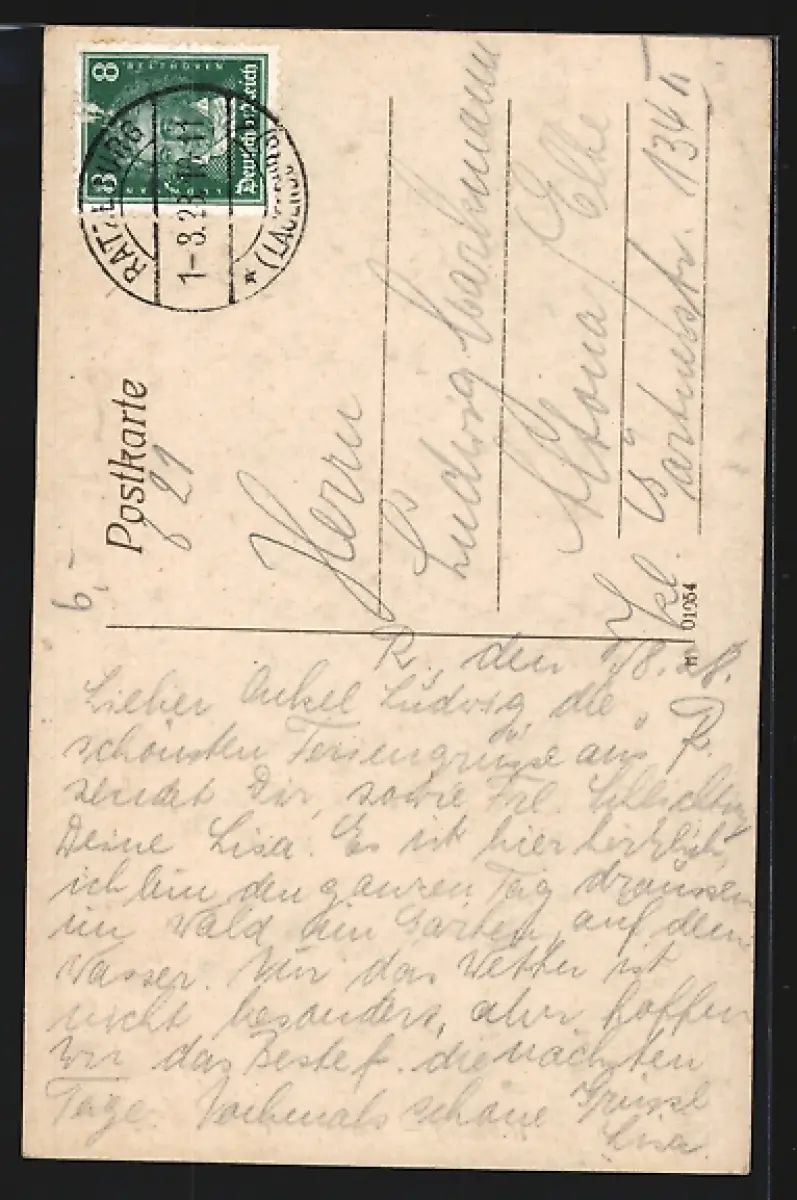 8 BEETHOVEN 8
Deutsches Reich
RATZEBURG
1-8.28.10-11
* (LAUENBURG)
Postkarte
f 21
6,-
Herrn
Ludwig Warkmann
Altona / Elbe
Gärtnerstr. 134 II
H 01054
R., den 1/8.28.
Lieber Onkel Ludwig, die
schönsten Feriengrüsse aus R.
sendet Dir, sowie Frl. Schlichting
Deine Lisa. Es ist hier herrlich,
ich bin den ganzen Tag draussen
im Wald, im Garten, auf dem
Wasser. Nur das Wetter ist
nicht besonders, aber hoffen
wir das Beste f. die nächsten
Tage. Nochmals schöne Grüsse
Lisa.